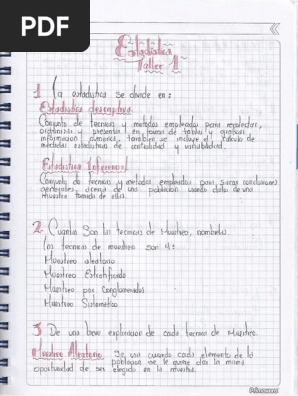 PDF
Estadística
Taller 1
1. La estadística se divide en:
Estadística descriptiva
Conjunto de tecnicas y metodos empleados para recolectar,
organizar y presentar en forma de tablas y graficas
informacion numerica, tambien se incluye el calculo de
medidas estadisticas de centralidad y variabilidad.
Estadística Inferencial
Conjunto de tecnicas y metodos empleados para sacar conclusiones
generales, acerca de una poblacion usando datos de una
muestra tomada de ella.
2. Cuantas son las tecnicas de Muestreo, nombrelas.
Las tecnicas de muestreo son 4:
Muestreo aleatorio
Muestreo Estratificado
Muestreo por Conglomerados
Muestreo Sistemático
3. De una breve explicacion de cada tecnica de Muestreo.
Muestreo Aleatorio: Se usa cuando cada elemento de la
poblacion se le quiere dar la misma
oportunidad de ser elegido en la muestra.
Primavera